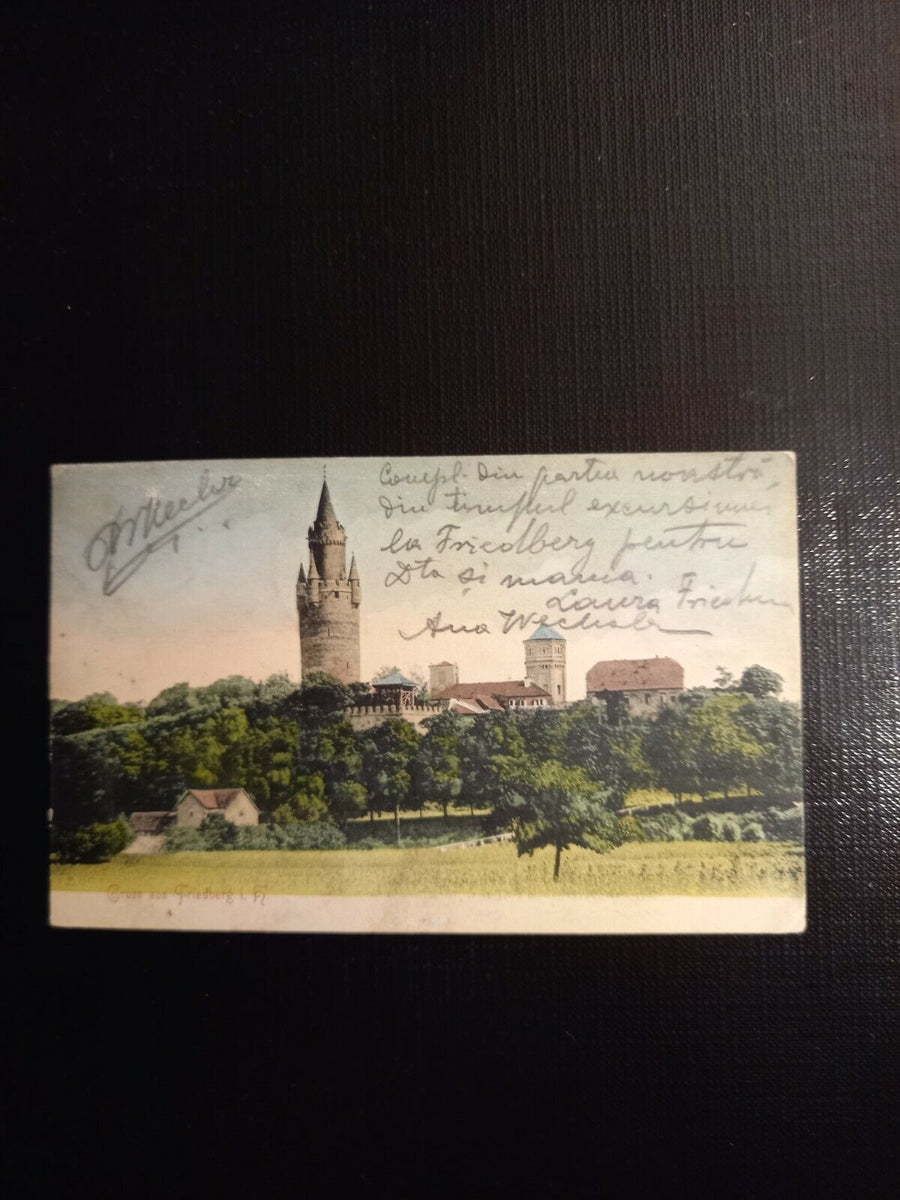 Compl. din partea noastră,
din timpul excursiunei
la Friedberg pentru
Dta și mama.
Laura
Ana Wechsler
Wechsler
Gruss aus Friedberg i. H.